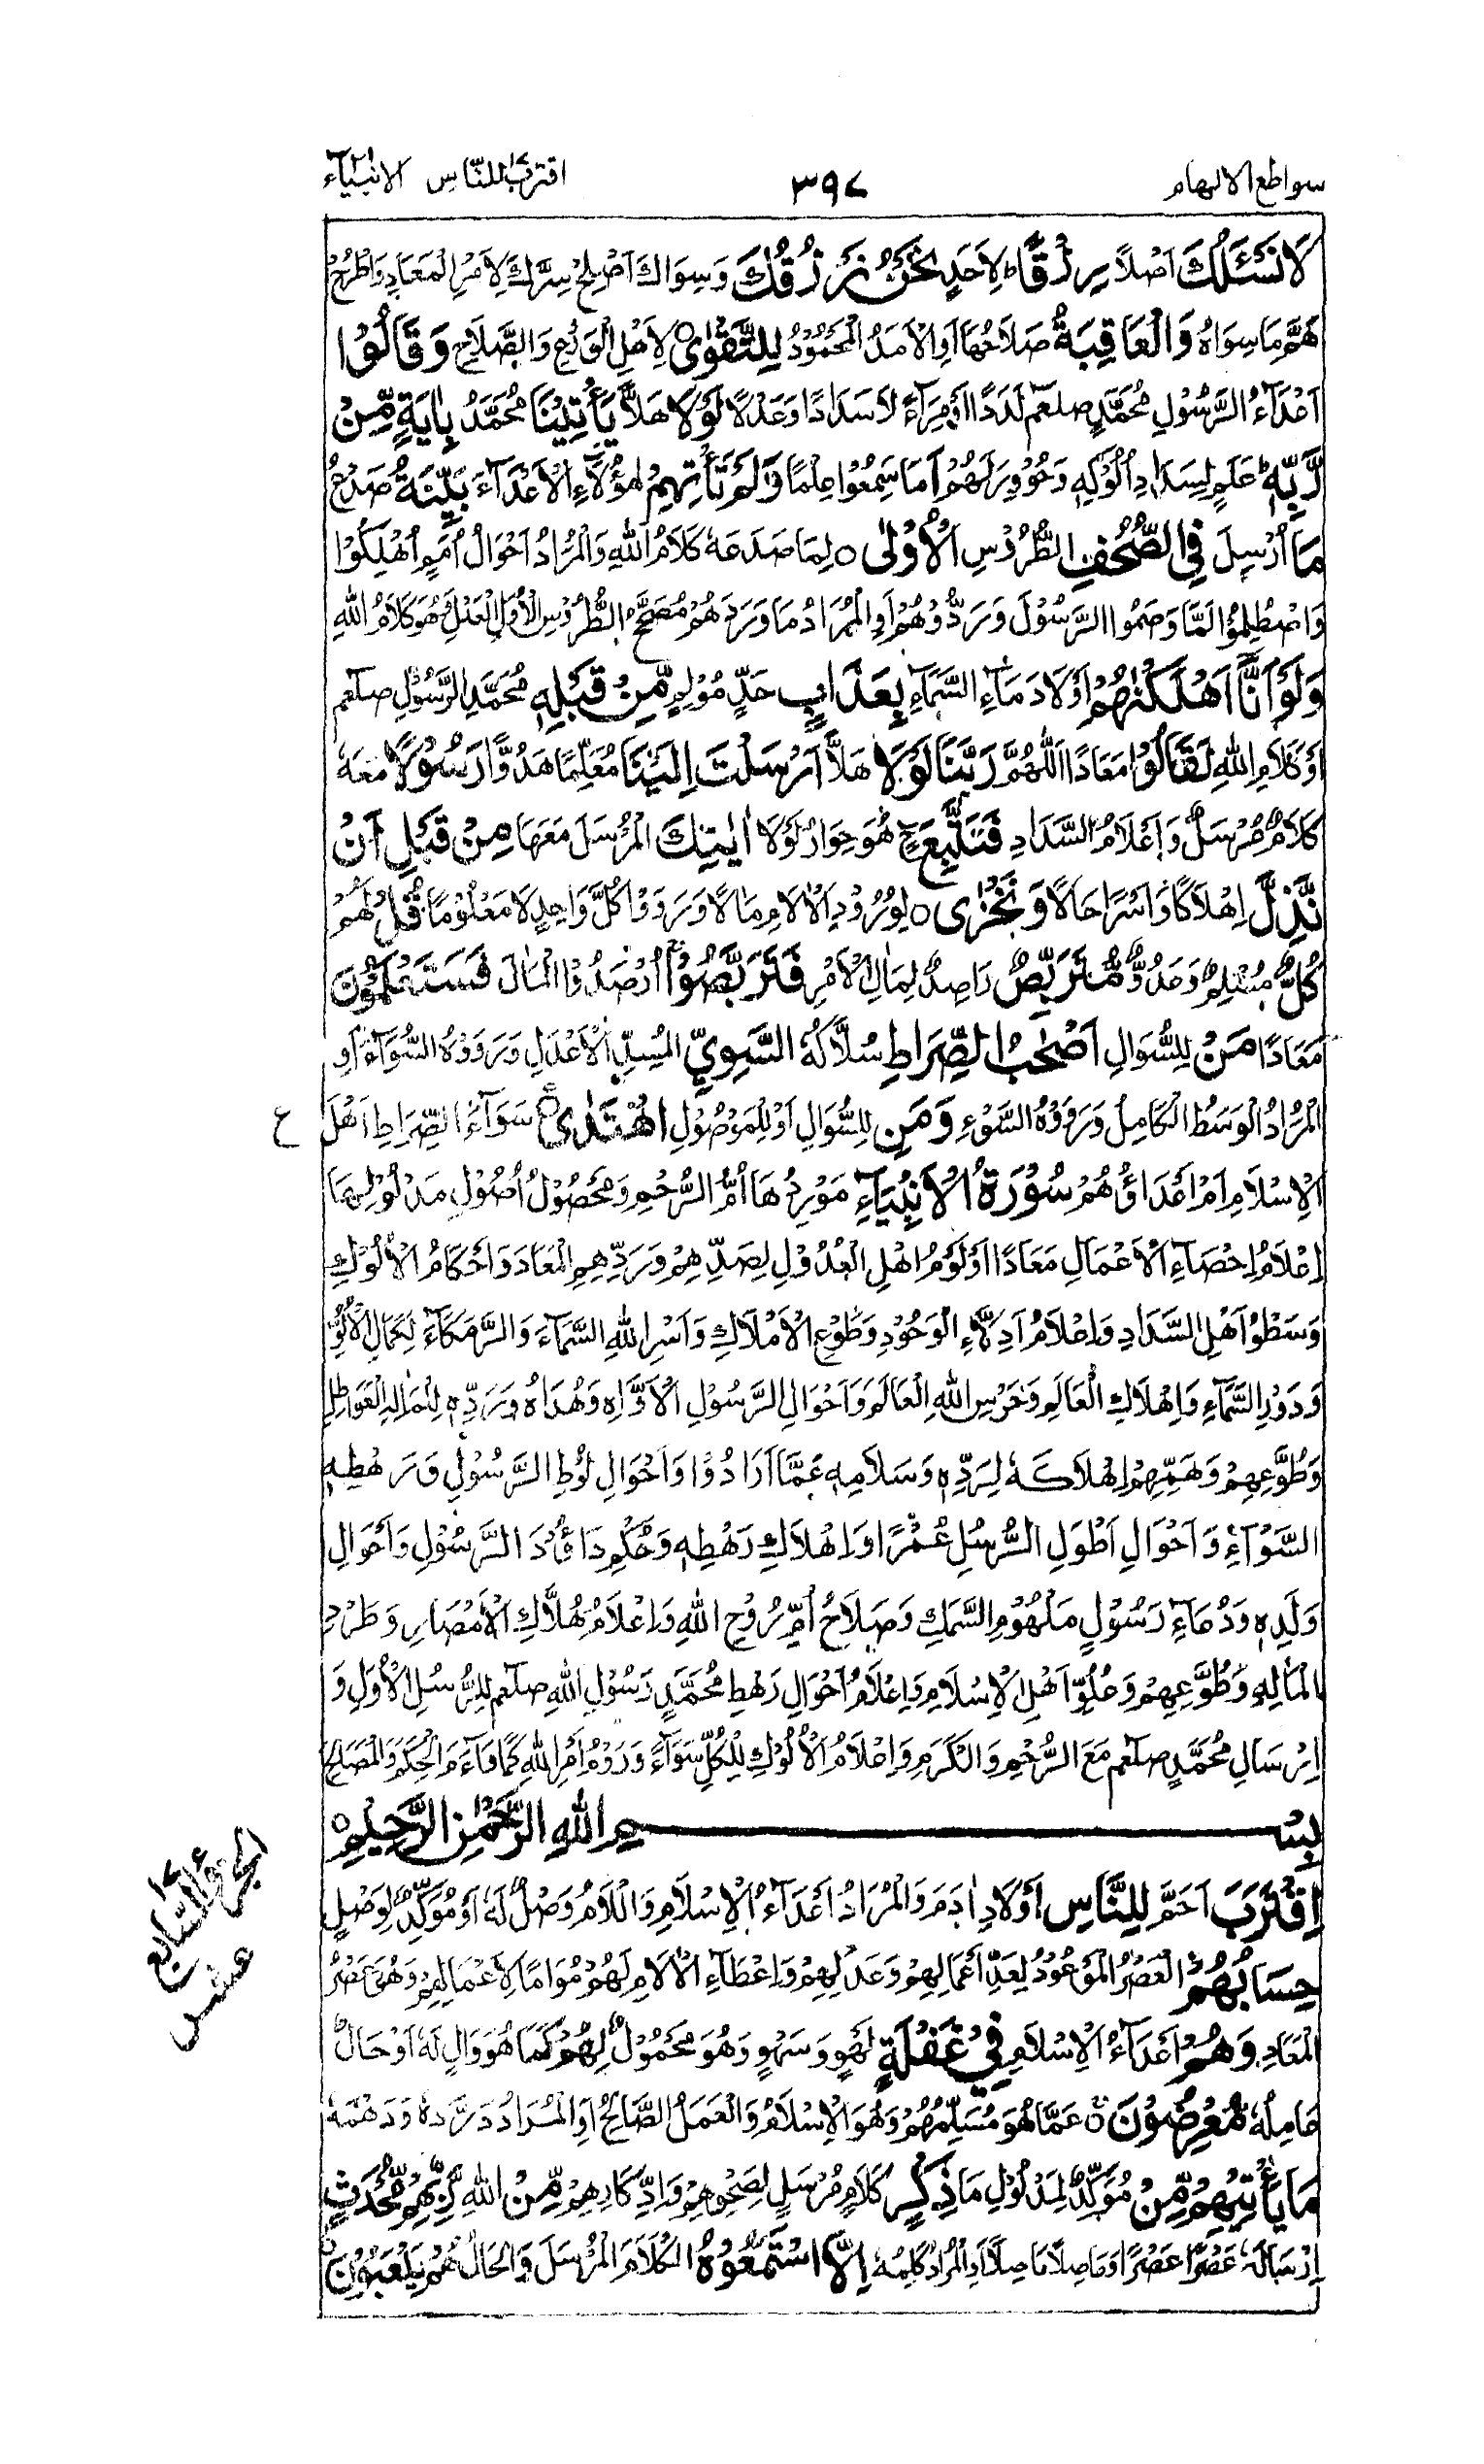 سواطع الالهام ٣٩٧ اقترب للنّاس الانبیآء
لَا نَسْـَٔلُكَ اَصْلًا رِزْقًا لِاَحَدٍ نَحْنُ نَرْزُقُكَ وَسِوَاكَ اَصْلِحْ سِرَّكَ لِاَمْرِ الْمَعَادِ وَاطْرَحْ
هَمَّ مَا سِوَاهُ وَالْعَاقِبَةُ صَلَاحُهَا اَوِ الْاَمَدُ الْمَحْمُوْدُ لِلتَّقْوٰى لِاَهْلِ الْوَرَعِ وَالصَّلَاحِ وَقَالُوْا
اَعْدَآءُ الرَّسُوْلِ مُحَمَّدٍ صلعم لَدَدًا اَوْ مِرَآءً لَا سَدَادًا وَعَدْلًا لَوْلَا هَلَّا يَأْتِيْنَا مُحَمَّدٌ بِاٰيَةٍ مِّنْ
رَّبِّهٖ عَلَمٍ لِسَدَادِ اُلُوْكِهٖ وَحُوْوِرَ لَهُمْ اَمَا سَمِعُوْا عِلْمًا وَلَمْ تَأْتِهِمْ هٰؤُلَآءِ الْاَعْدَآءَ بَيِّنَةُ صَدْعُ
مَا اُرْسِلَ فِى الصُّحُفِ الطُّرُوْسِ الْاُوْلٰى لِمَا صَدَعَهٗ كَلَامُ اللّٰهِ وَالْمُرَادُ اَحْوَالُ اُمَمٍ اُهْلِكُوْا
وَاصْطُلِمُوْا لَمَّا وَصَمُوا الرَّسُوْلَ وَرَدُّوْهُمْ اَوِ الْمُرَادُ مَا وَرَدَهُمْ مُصَحِّحُ الطُّرُوْسِ الْاُوَلِ الْعَدْلِ هُوَ كَلَامُ اللّٰهِ
وَلَوْ اَنَّا اَهْلَكْنٰهُمْ اَوْلَادَ مَآءِ السَّمَآءِ بِعَذَابٍ حَدٍّ مُوْلِمٍ مِّنْ قَبْلِهٖ مُحَمَّدِ الرَّسُوْلِ صلعم
اَوْ كَلَامِ اللّٰهِ لَقَالُوْا مَعَادًا اَللّٰهُمَّ رَبَّنَا لَوْلَا هَلَّا اَرْسَلْتَ اِلَيْنَا مُعَلِّمًا هَدُوًّا رَسُوْلًا مَعَهٗ
كَلَامٌ مُرْسَلٌ وَاَعْلَامُ السَّدَادِ فَنَتَّبِعَ هُوَ حِوَارُ لَوْلَا اٰيٰتِكَ الْمُرْسَلَ مَعَهَا مِنْ قَبْلِ اَنْ
نَّذِلَّ اِهْلَاكًا وَاَسْرًا حَالًا وَنَخْزٰى لِوُرُوْدِ الْاٰلَامِ مَاٰلًا وَرَوَوْا كُلَّ وَاحِدٍ لَا مَعْلُوْمًا قُلْ لَهُمْ
كُلٌّ مُسْلِمٌ وَعَدُوٌّ مُّتَرَبِّصٌ رَاصِدٌ لِمَاٰلِ الْاَمْرِ فَتَرَبَّصُوْا اُرْصُدُوْا الْمَاٰلَ فَسَتَعْلَمُوْنَ
مَعَادًا مَنْ لِلسُّوَالِ اَصْحٰبُ الصِّرَاطِ سُلَّاكُهُ السَّوِيِّ الْمُسِدِّ الْاَعْدَلِ وَرَوَوْهُ السُّوَآءَ اَوِ
الْمُرَادُ الْوَسَطُ الْكَامِلُ وَرَوَوْهُ السَّوْءِ وَمَنِ لِلسُّوَالِ اَوْ لِلْمَوْصُوْلِ اهْتَدٰى سَوَآءَ الصِّرَاطِ اَهْلُ ع
الْاِسْلَامِ اَمْ اَعْدَاؤُهُمْ سُوْرَةُ الْاَنْبِيَآءِ مَوْرِدُهَا اُمُّ الرُّحْمِ وَمَحْصُوْلُ اُصُوْلِ مَدْلُوْلِهَا
اِعْلَامُ اِحْصَآءِ الْاَعْمَالِ مَعَادًا اَوْ لَوْمُ اَهْلِ الْعُدُوْلِ لِصَدِّهِمْ وَرَدِّهِمِ الْمَعَادَ وَاَحْكَامُ الْاُلُوْكِ
وَسَطْوُ اَهْلِ السَّدَادِ وَاِعْلَامُ اَدِلَّآءِ الْوُحُوْدِ وَطَوْعِ الْاَمْلَاكِ وَاَسْرِ اللّٰهِ السَّمَآءَ وَالرَّمْكَآءَ لِكَمَالِ الْاَلْوِ
وَدَوْرِ السَّمَآءِ وَاِهْلَاكِ الْعَالَمِ وَحَرْسِ اللّٰهِ الْعَالَمَ وَاَحْوَالِ الرَّسُوْلِ الْاَوَّاهِ وَهُدَاهُ وَرَدِّهٖ
وَطُوَّعِهِمْ وَهَمِّهِمْ اِهْلَاكَهٗ لِرَدِّهٖ وَسَلَامِهٖ عَمَّا اَرَادُوْا وَاَحْوَالِ لُوْطِ الرَّسُوْلِ وَرَهْطِهٖ
السَّوْآءِ وَاَحْوَالِ اَطْوَلِ الرُّسُلِ عُمْرًا وَاِهْلَاكِ رَهْطِهٖ وَحُكْمِ دَاوٗدَ الرَّسُوْلِ وَاَحْوَالِ
وَلَدِهٖ وَدُعَآءِ رَسُوْلٍ مَلْهُوْمِ السَّمَكِ وَصَلَاحُ اُمِّ رُوْحِ اللّٰهِ وَاِعْلَامُ هُلَّاكِ الْاَمْصَارِ وَطَرْدِ
الْمَاٰلِهِ وَطُوَّعِهِمْ وَعُلُوِّ اَهْلِ الْاِسْلَامِ وَاِعْلَامُ اَحْوَالِ رَهْطِ مُحَمَّدٍ رَسُوْلِ اللّٰهِ صلعم لِلرُّسُلِ الْاُوَلِ وَ
اِرْسَالِ مُحَمَّدٍ صلعم مَعَ الرُّحْمِ وَالْكَرَمِ وَاِعْلَامُ الْاُلُوْكِ لِلْكُلِّ سَوَآءً وَرَوْمُ اَمْرِ اللّٰهِ كَمَا وَآءَمَ الْحِكَمَ وَالْمَصَالِحَ
بِسْمِ اللّٰهِ الرَّحْمٰنِ الرَّحِيْمِ
اِقْتَرَبَ اَحَمَّ لِلنَّاسِ اَوْلَادِ اٰدَمَ وَالْمُرَادُ اَعْدَآءُ الْاِسْلَامِ وَاللَّامُ وَصْلٌ لَهٗ اَوْ مُوَكِّدٌ لِوَصْلِ
حِسَابُهُمْ الْعَصْرُ الْمَوْعُوْدُ لِعَدِّ اَعْمَالِهِمْ وَعَدْلِهِمْ وَاِعْطَآءِ الْاٰلَامِ لَهُمْ مُوَامًا لِاَعْمَالِهِمْ وَهُوَ عَصْرُ
الْمَعَادِ وَهُمْ اَعْدَآءُ الْاِسْلَامِ فِيْ غَفْلَةٍ لَهْوٍ وَسَهْوٍ وَهُوَ مَحْمُوْلٌ لِهُمْ كَمَا هُوَ وَالٍ لَهٗ اَوْ حَالٌ
عَامِلُهٗ مُّعْرِضُوْنَ عَمَّا هُوَ مُسَلِّمُهُمْ وَهُوَ الْاِسْلَامُ وَالْعَمَلُ الصَّالِحُ اَوِ الْمُرَادُ
مَا يَأْتِيْهِمْ مِّنْ مُوَكِّدٌ لِمَدْلُوْلِ مَا ذِكْرٍ كَلَامٍ مُرْسَلٍ لِصَحْوِهِمْ وَادِّكَارِهِمْ مِّنْ اللّٰهِ رَّبِّهِمْ مُّحْدَثٍ
اِرْسَالُهٗ عَصْرًا عَصْرًا اَوْ مَاصِلًا مَاصِلًا اَوِ الْمُرَادُ كَلِمُهٗ اِلَّا اسْتَمَعُوْهُ الْكَلَامَ الْمُرْسَلَ وَالْحَالُ هُمْ يَلْعَبُوْنَ
الجزؤ السّابع
عشر